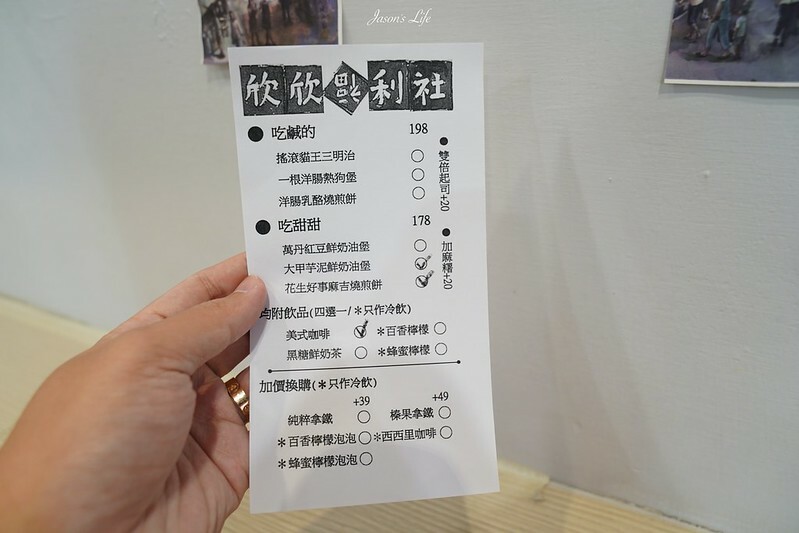 Jason's Life
欣欣福利社
吃鹹的 198
搖滾貓王三明治
一根洋腸熱狗堡
洋腸乳酪燒煎餅
雙倍起司+20
吃甜甜 178
萬丹紅豆鮮奶油堡
大甲芋泥鮮奶油堡
花生好事麻吉燒煎餅
加麻糬+20
均附飲品(四選一/*只作冷飲)
美式咖啡 *百香檸檬
黑糖鮮奶茶 *蜂蜜檸檬
加價換購(*只作冷飲)
+39 +49
純粹拿鐵 榛果拿鐵
*百香檸檬泡泡 *西西里咖啡
*蜂蜜檸檬泡泡